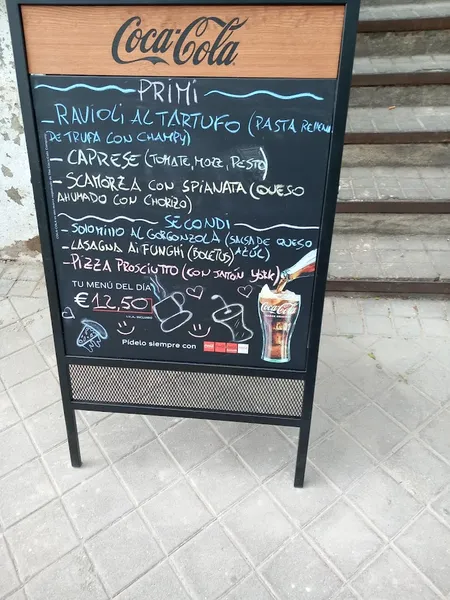 Coca-Cola
PRIMI
-RAVIOLI AL TARTUFO (PASTA
DE TRUFA CON CHAMPY)
- CAPRESE (TOMATE, MOZZ, PESTO)
- SCAMORZA CON SPIANATA (QUESO
AHUMADO CON CHORIZO)
SECONDI
- SOLOMINO AL GORGONZOLA (SALSA DE QUESO
AZUL)
-LASAGNA AI FUNGHI (BOLETUS)
-PIZZA PROSCIUTTO (CON JAMÓN YORK)
TU MENÚ DEL DÍA
€12,50
I.V.A. INCLUIDO
Pídelo siempre con
Coca-Cola